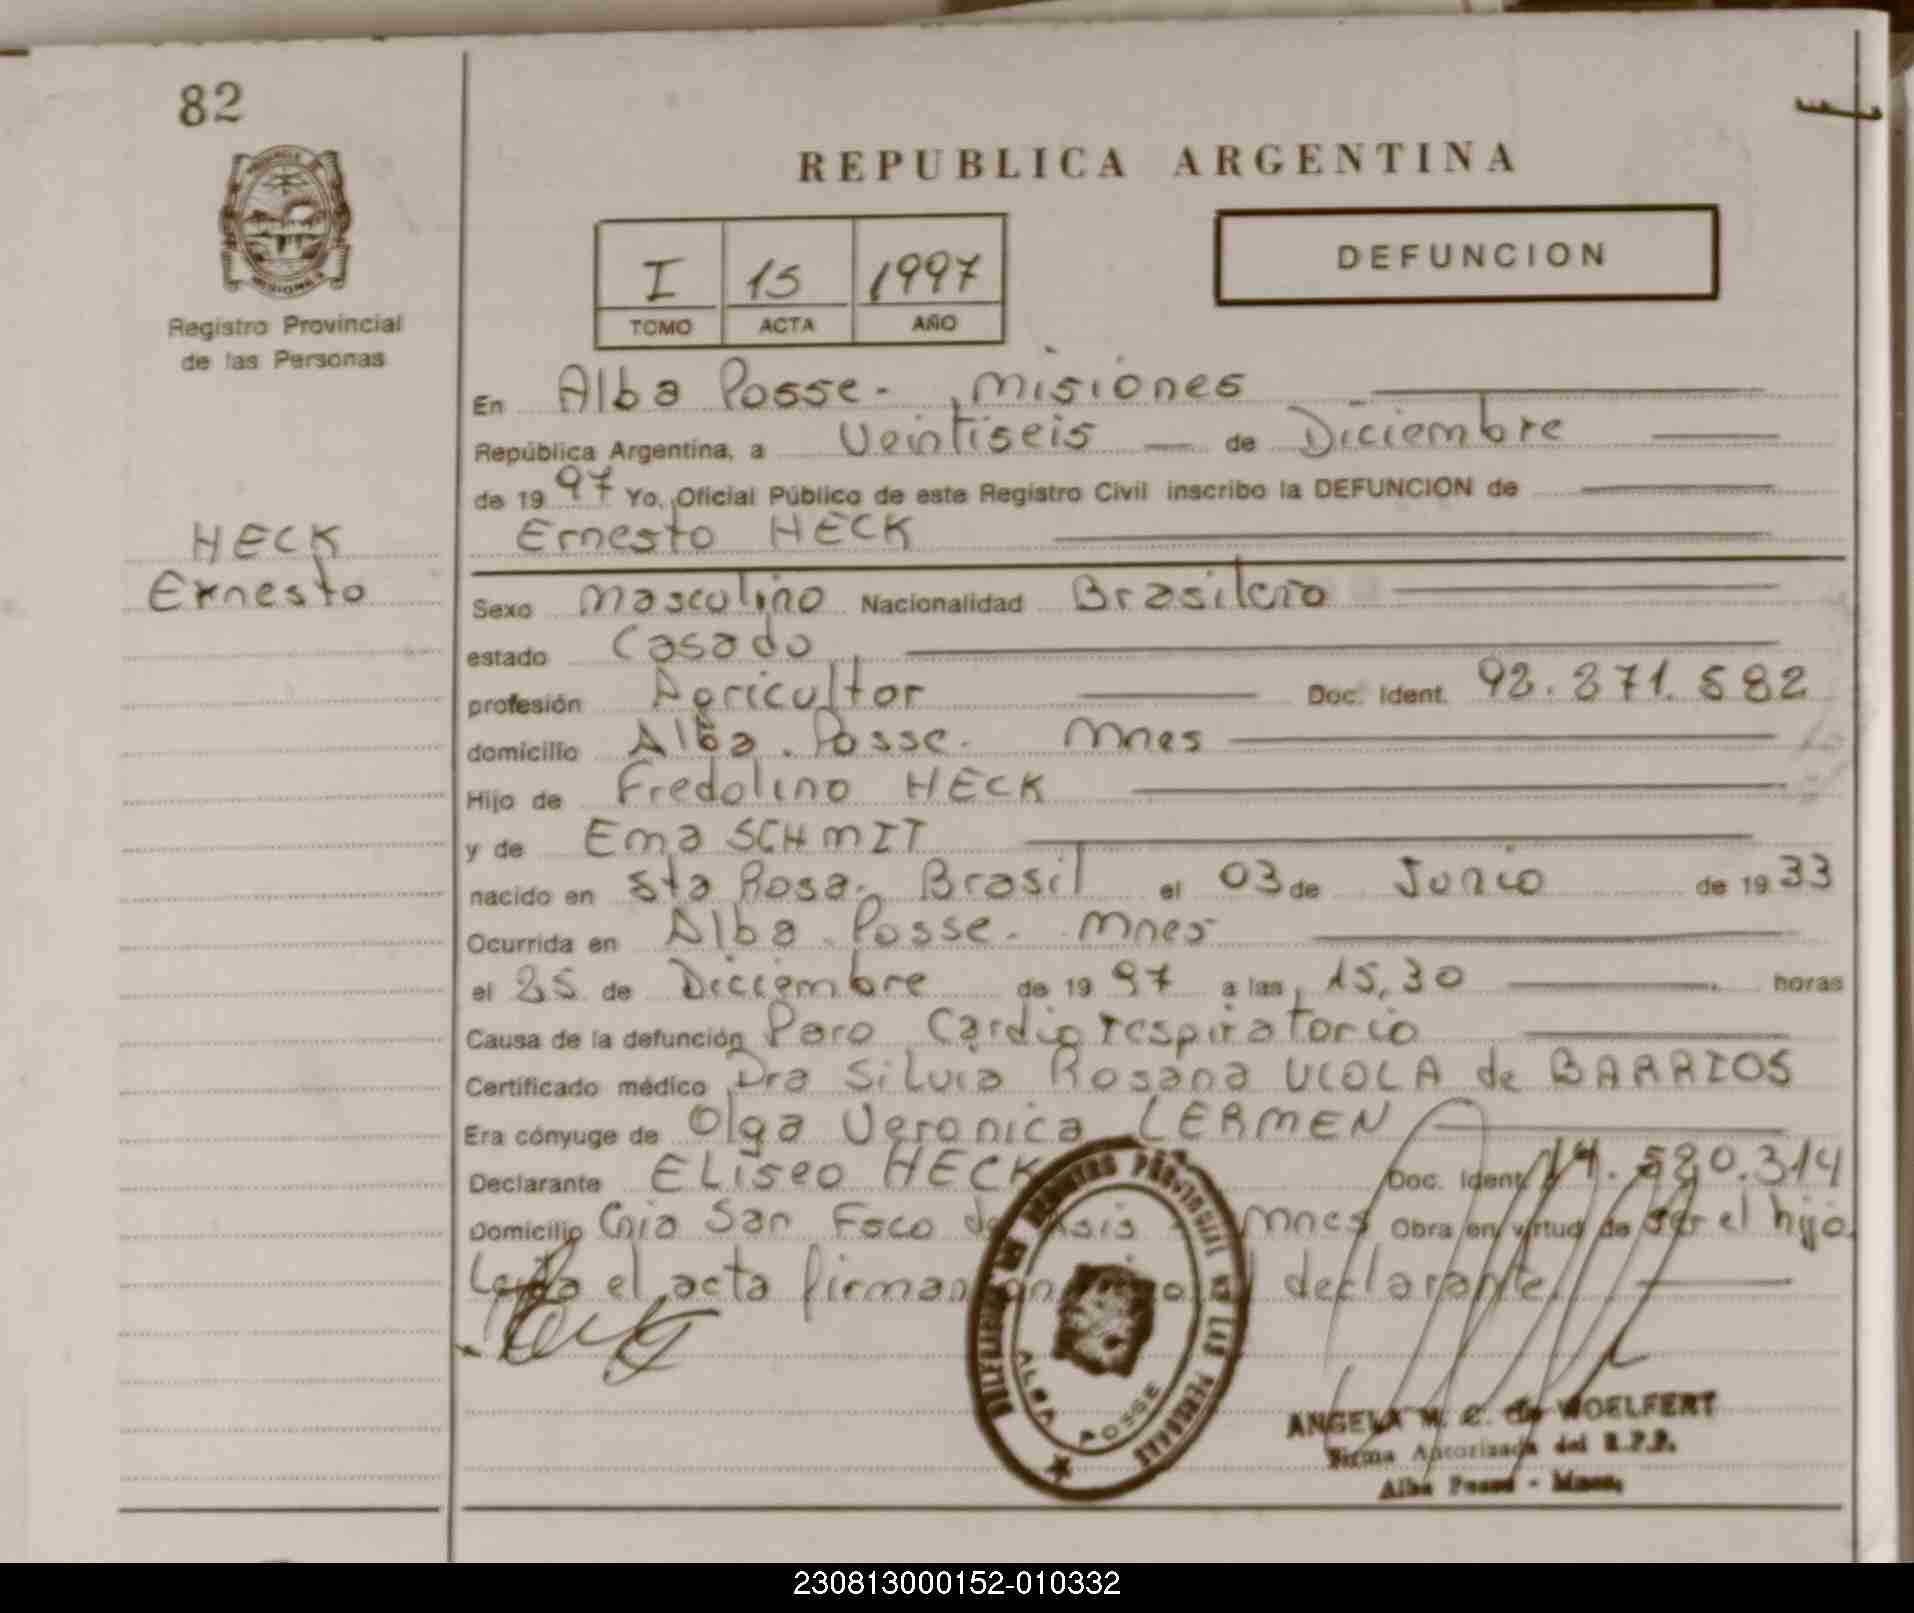 82
REPUBLICA ARGENTINA
DEFUNCION
I 15 1997
TOMO ACTA AÑO
Registro Provincial
de las Personas
En Alba Posse - Misiones
República Argentina, a Veintiseis de Diciembre
de 19 97 Yo, Oficial Público de este Registro Civil inscribo la DEFUNCION de
HECK
Ernesto
Ernesto HECK
Sexo Masculino Nacionalidad Brasilero
estado Casado
profesión Agricultor Doc. Ident. 92.371.582
domicilio Alba Posse - Mnes
Hijo de Fredolino HECK
y de Ema SCHMIT
nacido en Sta Rosa - Brasil el 03 de Junio de 19 33
Ocurrida en Alba Posse - Mnes
el 25 de Diciembre de 19 97 a las 15,30 horas
Causa de la defunción Paro Cardiorespiratorio
Certificado médico Dra Silvia Rosana VIOLA de BARRIOS
Era cónyuge de Olga Veronica LERMEN
Declarante ELiseo HECK Doc. Ident. 14.520.314
Domicilio Cnia San Fsco de Asis Mnes Obra en virtud de ser el hijo.
Leida el acta firman declarante.
DELEGACION DEL REGISTRO PROVINCIAL DE LAS PERSONAS
ALBA POSSE
ANGELA M. C. de WOELFERT
Firma Autorizada del R.P.P.
Alba Posse - Mnes.
230813000152-010332